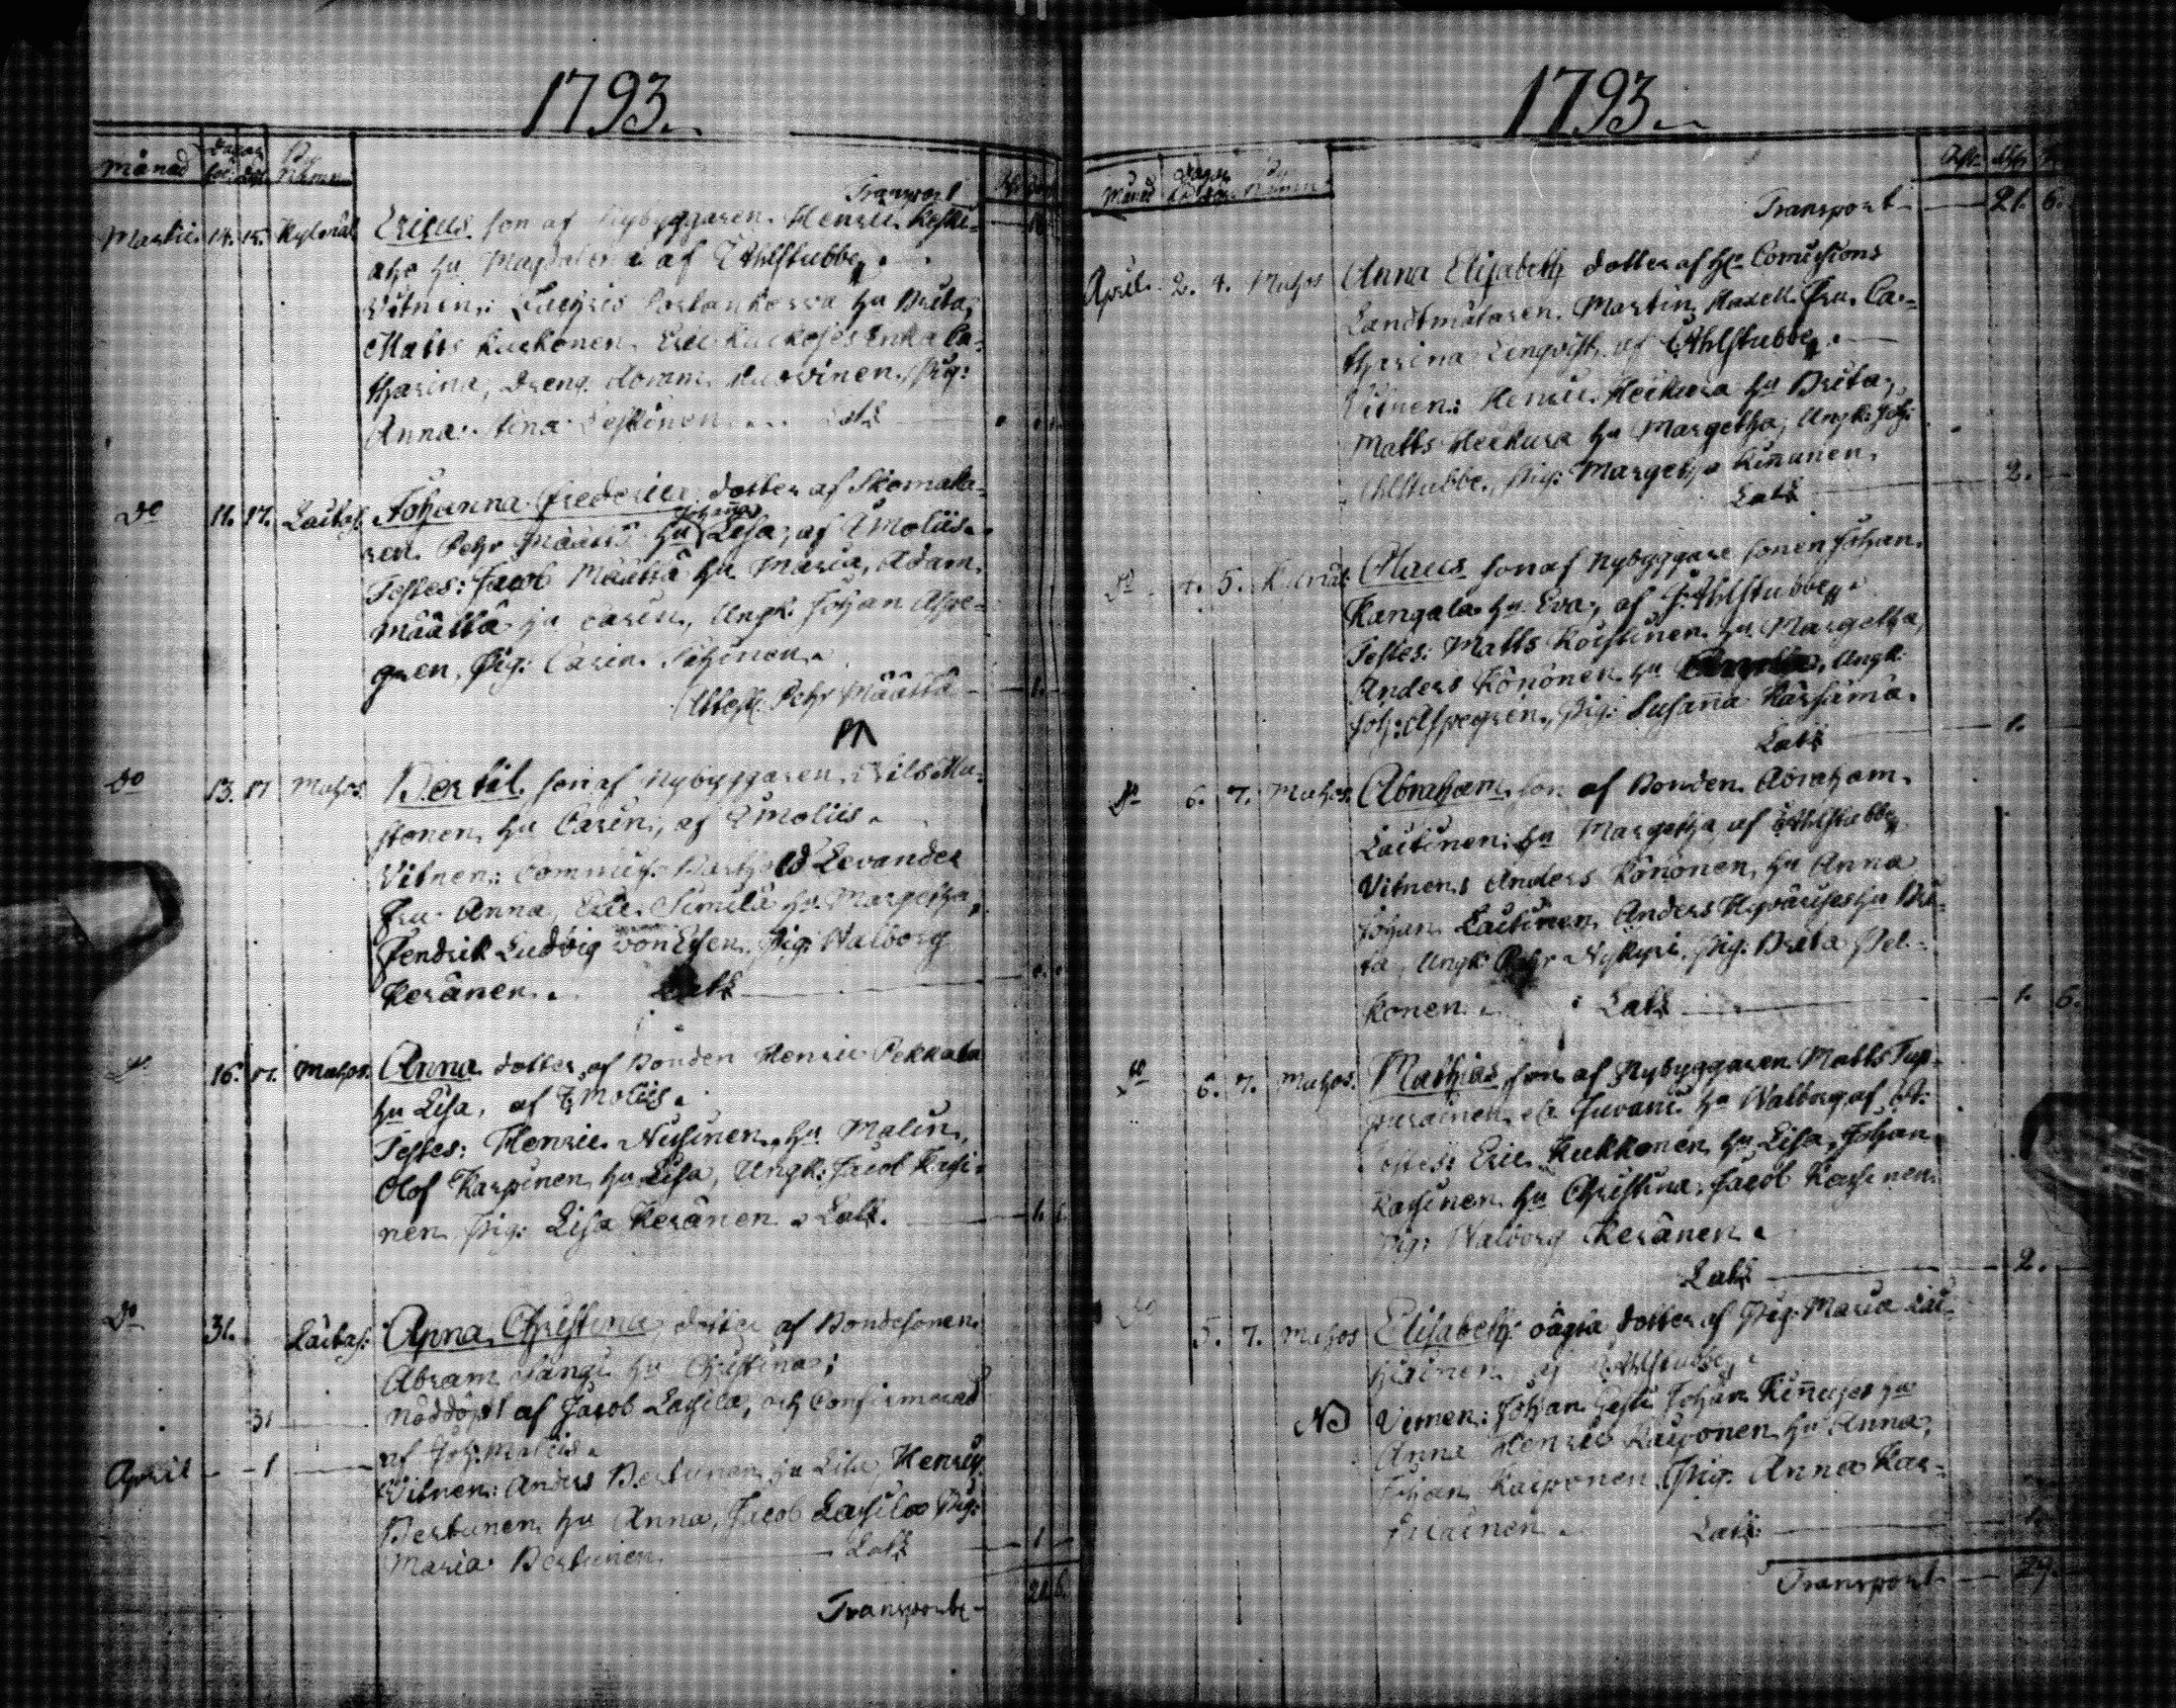 1793.
Månad Dagar By Namn
föd. döpt
Transport
Martii 14. 15. Kylmäl Ericus son af Nybyggaren Henric Keski-
aho hu Magdalena af J Ahlstubbe
Vitnen: hu Brita,
Matts Kukkonen, Eric Ca-
tharina, Dreng Pig:
Anna Stina Leskinen Latz
Do 11. 17. Laitas. Johanna Frederica dotter af Skomaka-
ren Pehr Määttä hu Johanna Lisa, af J Moliis.
Testes: Jacob Määttä hu Maria, Adam
Määttä hu Carin, Ungk. Johan Aspe-
gren, Pig: Carin
Attest. Pehr Määttä 1.
Do 13. 17 Muhos. Bertil son af Nybyggaren Nils Mu-
stonen hu Carin, af J Moliis.
Vitnen: Commiss. Barthold Levander
fru Anna, Eric Similä hu Margetha,
Fendrik Ludvig von Essen, Pig: Walborg
Keränen. Latz
Do 16. 17. Muhos. Anna dotter af Bonden Henric Pekkala
hu Lisa, af J Moliis.
Testes: Henric Nusinen, hu Malin,
Olof Karpinen hu Lisa, Ungk: Jacob Kasi-
nen Pig: Lisa Keränen. Latz. 1.
Do 31. Laitas: Anna Christina dotter af Bondesonen
Abram hu Christina;
31 nöddöpt af Jacob Lassila, och Confirmerad
af Joh. Moliis.
April 1 Vitnen: Anders Bertunen hu Lisa, Henric
Bertunen hu Anna, Jacob Lassila Pig:
Maria Bertunen Latz 1
Transport 21. 6.
1793.
Månad Dagar By Namn
Transport 21. 6.
April. 2. 4. Muhos Anna Elisabeth dotter af Hr Comissions
Landtmätaren Martin Haxell Fru Ca-
tharina Lengvist, af J Ahlstubbe.
Vitnen: Henric Heikura hu Brita,
Matts Heikura hu Margetha, Ungk: Joh:
Ahlstubbe, Pig: Margetha Kinnunen.
Latz 2.
Do 4. 5. Kylmäl Olaus son af Nybyggare sonen Johan
Kangala hu Eva, af J. Ahlstubbe.
Testes: Matts Koistinen hu Margetha,
Anders Könönen hu Ungk:
Joh: Aspegren, Pig: Susanna Kärsämä.
Latz 1.
Do 6. 7. Muhos. Abraham son af Bonden Abraham
Laitinen hu Margetha af J Ahlstubbe
Vitnen: Anders Könönen hu Anna
Johan Laitinen Anders hu Bri-
ta, Ungk Pehr Nykyri. Pig: Brita Pel-
konen. Latz 1. 6.
Do 6. 7. Muhos. Mathias son af Nybyggaren Matts Tup-
purainen el. Juvani hu Walborg, af J A:
Testes: Eric Kukkonen hu Lisa, Johan
Kasinen hu Christina, Jacob Kasinen
Pig: Walborg Keränen.
Latz 2.
Do 5. 7. Muhos Elisabeth oägta dotter af Pig: Maria
af J Ahlstubbe.
NB Vitnen: Johan Johan Kinnuses hu
Anna Henric Karponen hu Anna,
Johan Karponen Pig: Anna Kar-
Latz
Transport 29.